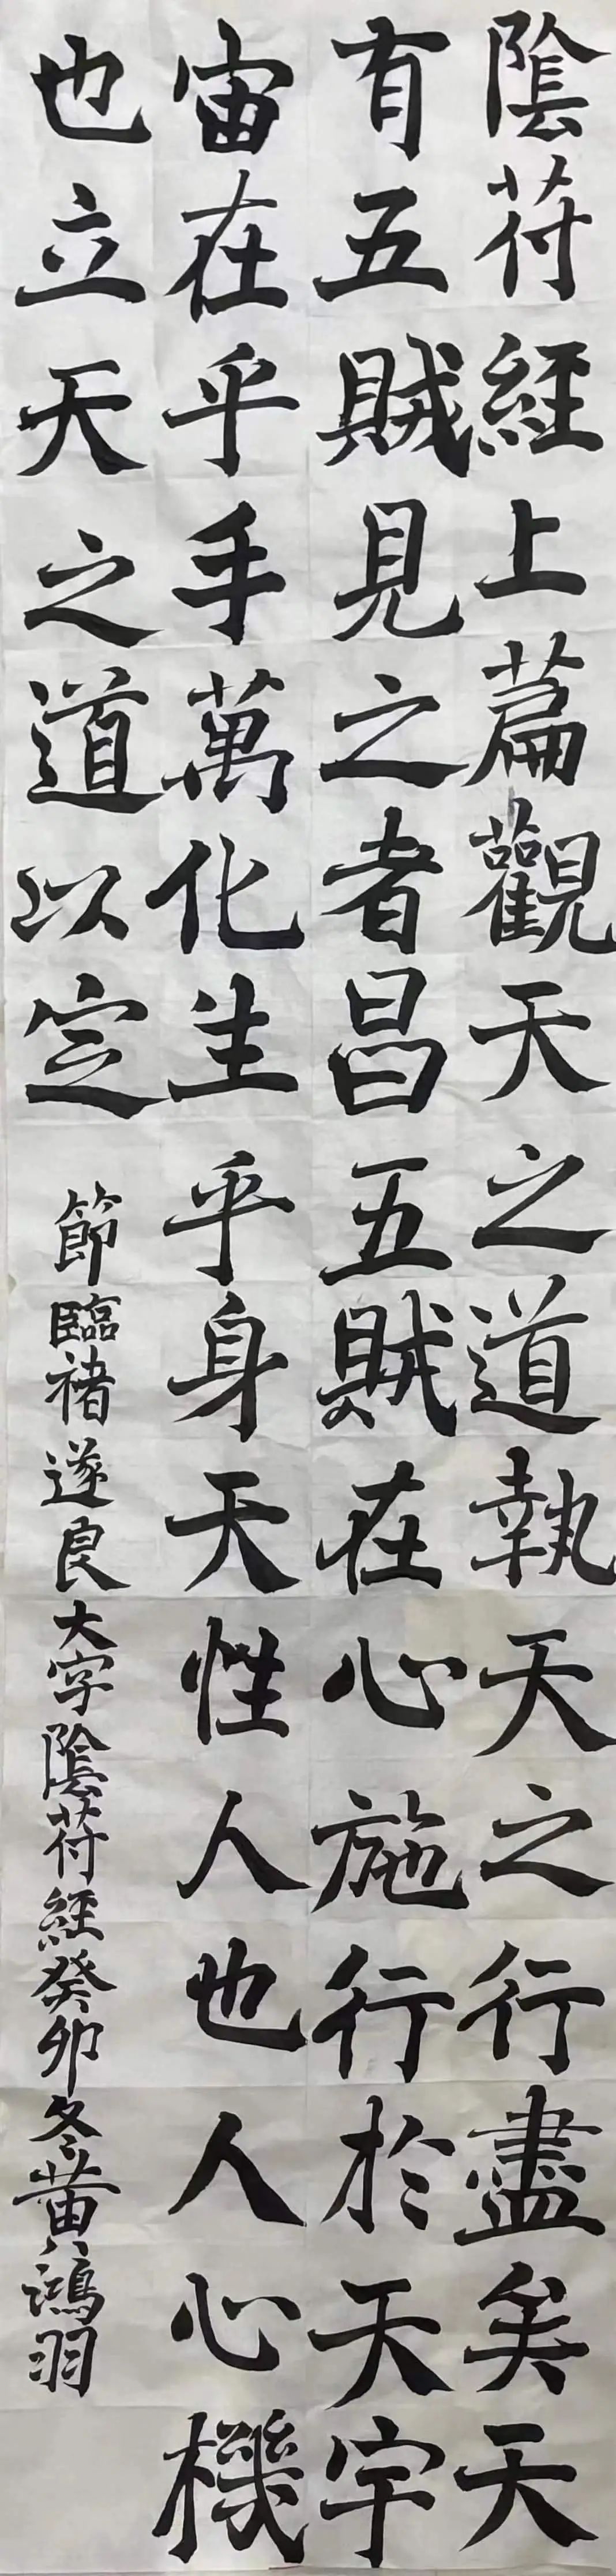 陰符經上篇觀天之道執天之行盡矣天
有五賊見之者昌五賊在心施行於天宇
宙在乎手萬化生乎身天性人也人心機
也立天之道以定
節臨褚遂良大字陰符經癸卯冬黄鴻羽